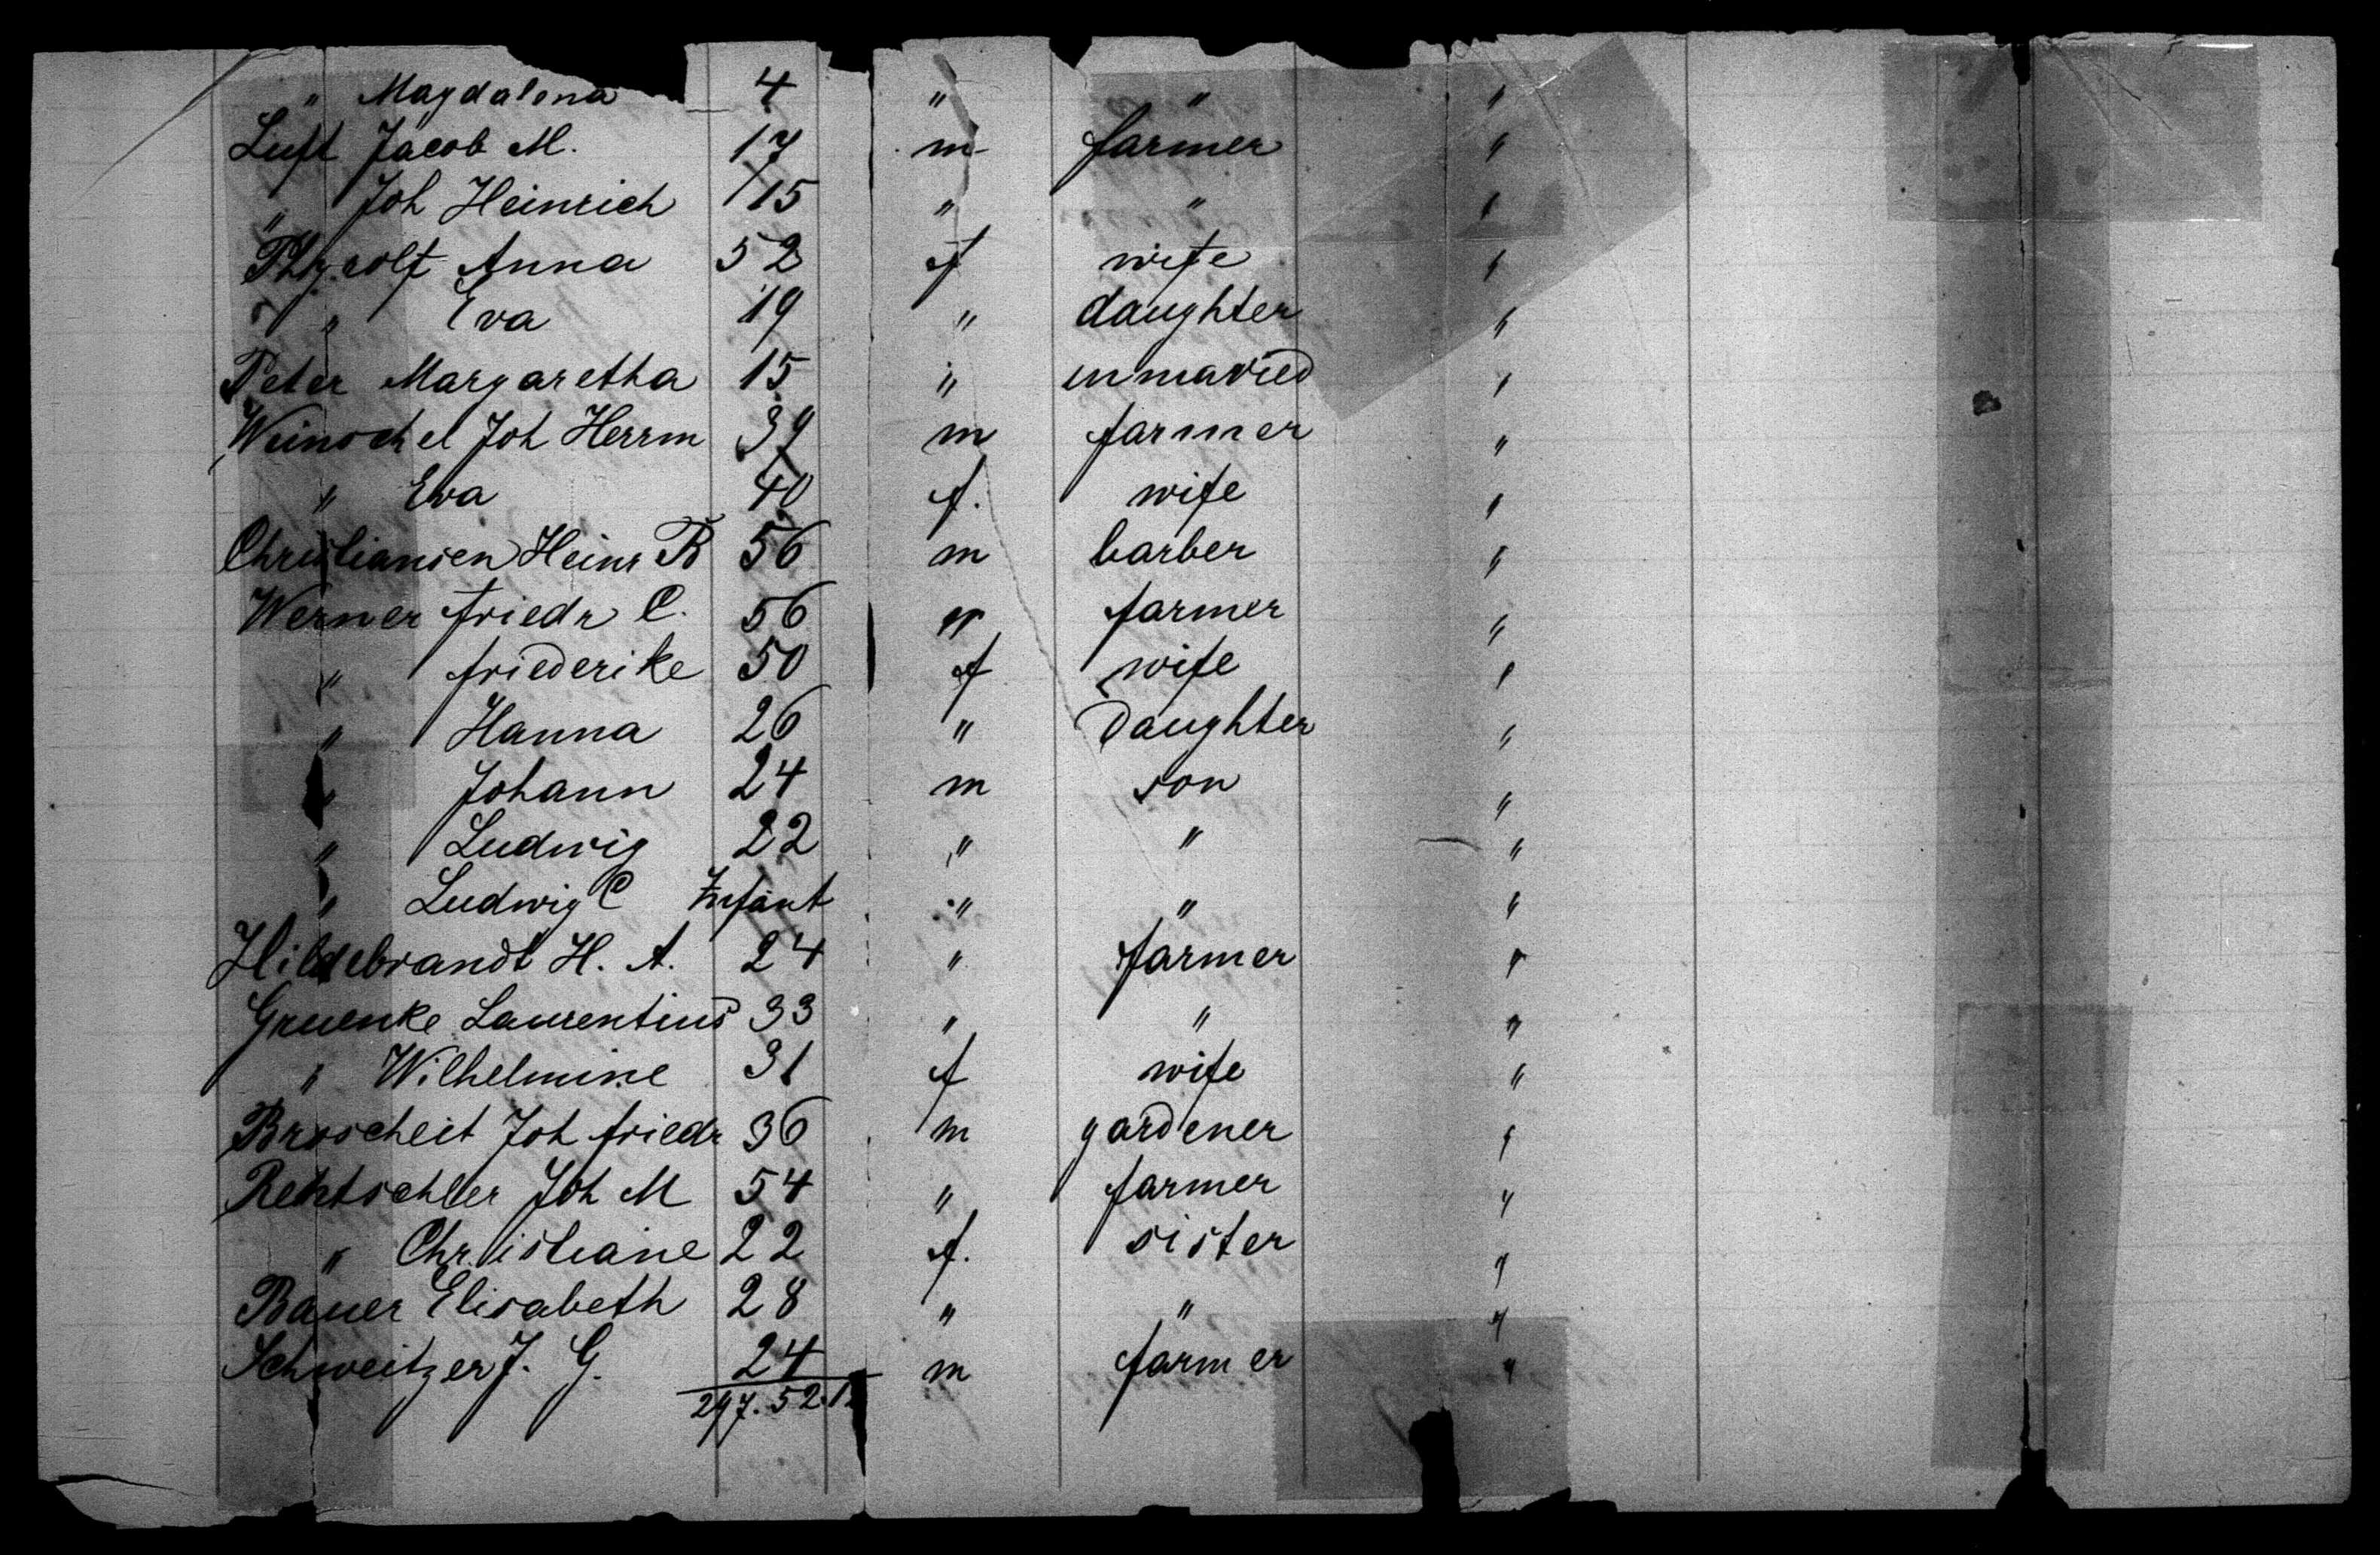 " Magdalena 4 " " "
Luft Jacob M. 17 m farmer "
" Joh Heinrich 15 " " "
Anna 52 f wife "
" Eva 19 " daughter "
Peter Margaretha 15 " unmaried "
Weinschel Joh Herrm 39 m farmer "
" Eva 40 f. wife "
Christiansen Heinr B 56 m barber "
Werner Friedr C. 56 " farmer "
" Friederike 50 f wife "
" Hanna 26 " Daughter "
" Johann 24 m son "
" Ludwig 22 " " "
" Ludwig C Infant " " "
Hildebrandt H. A. 24 " farmer "
Gruenke Laurentius 33 " " "
" Wilhelmine 31 f wife "
Broscheit Joh Friedr 36 m gardener "
Rentschler Joh M 54 " farmer "
" Christiane 22 f. sister "
Bauer Elisabeth 28 " " "
Schweitzer J. G. 24 m farmer "
297. 52.